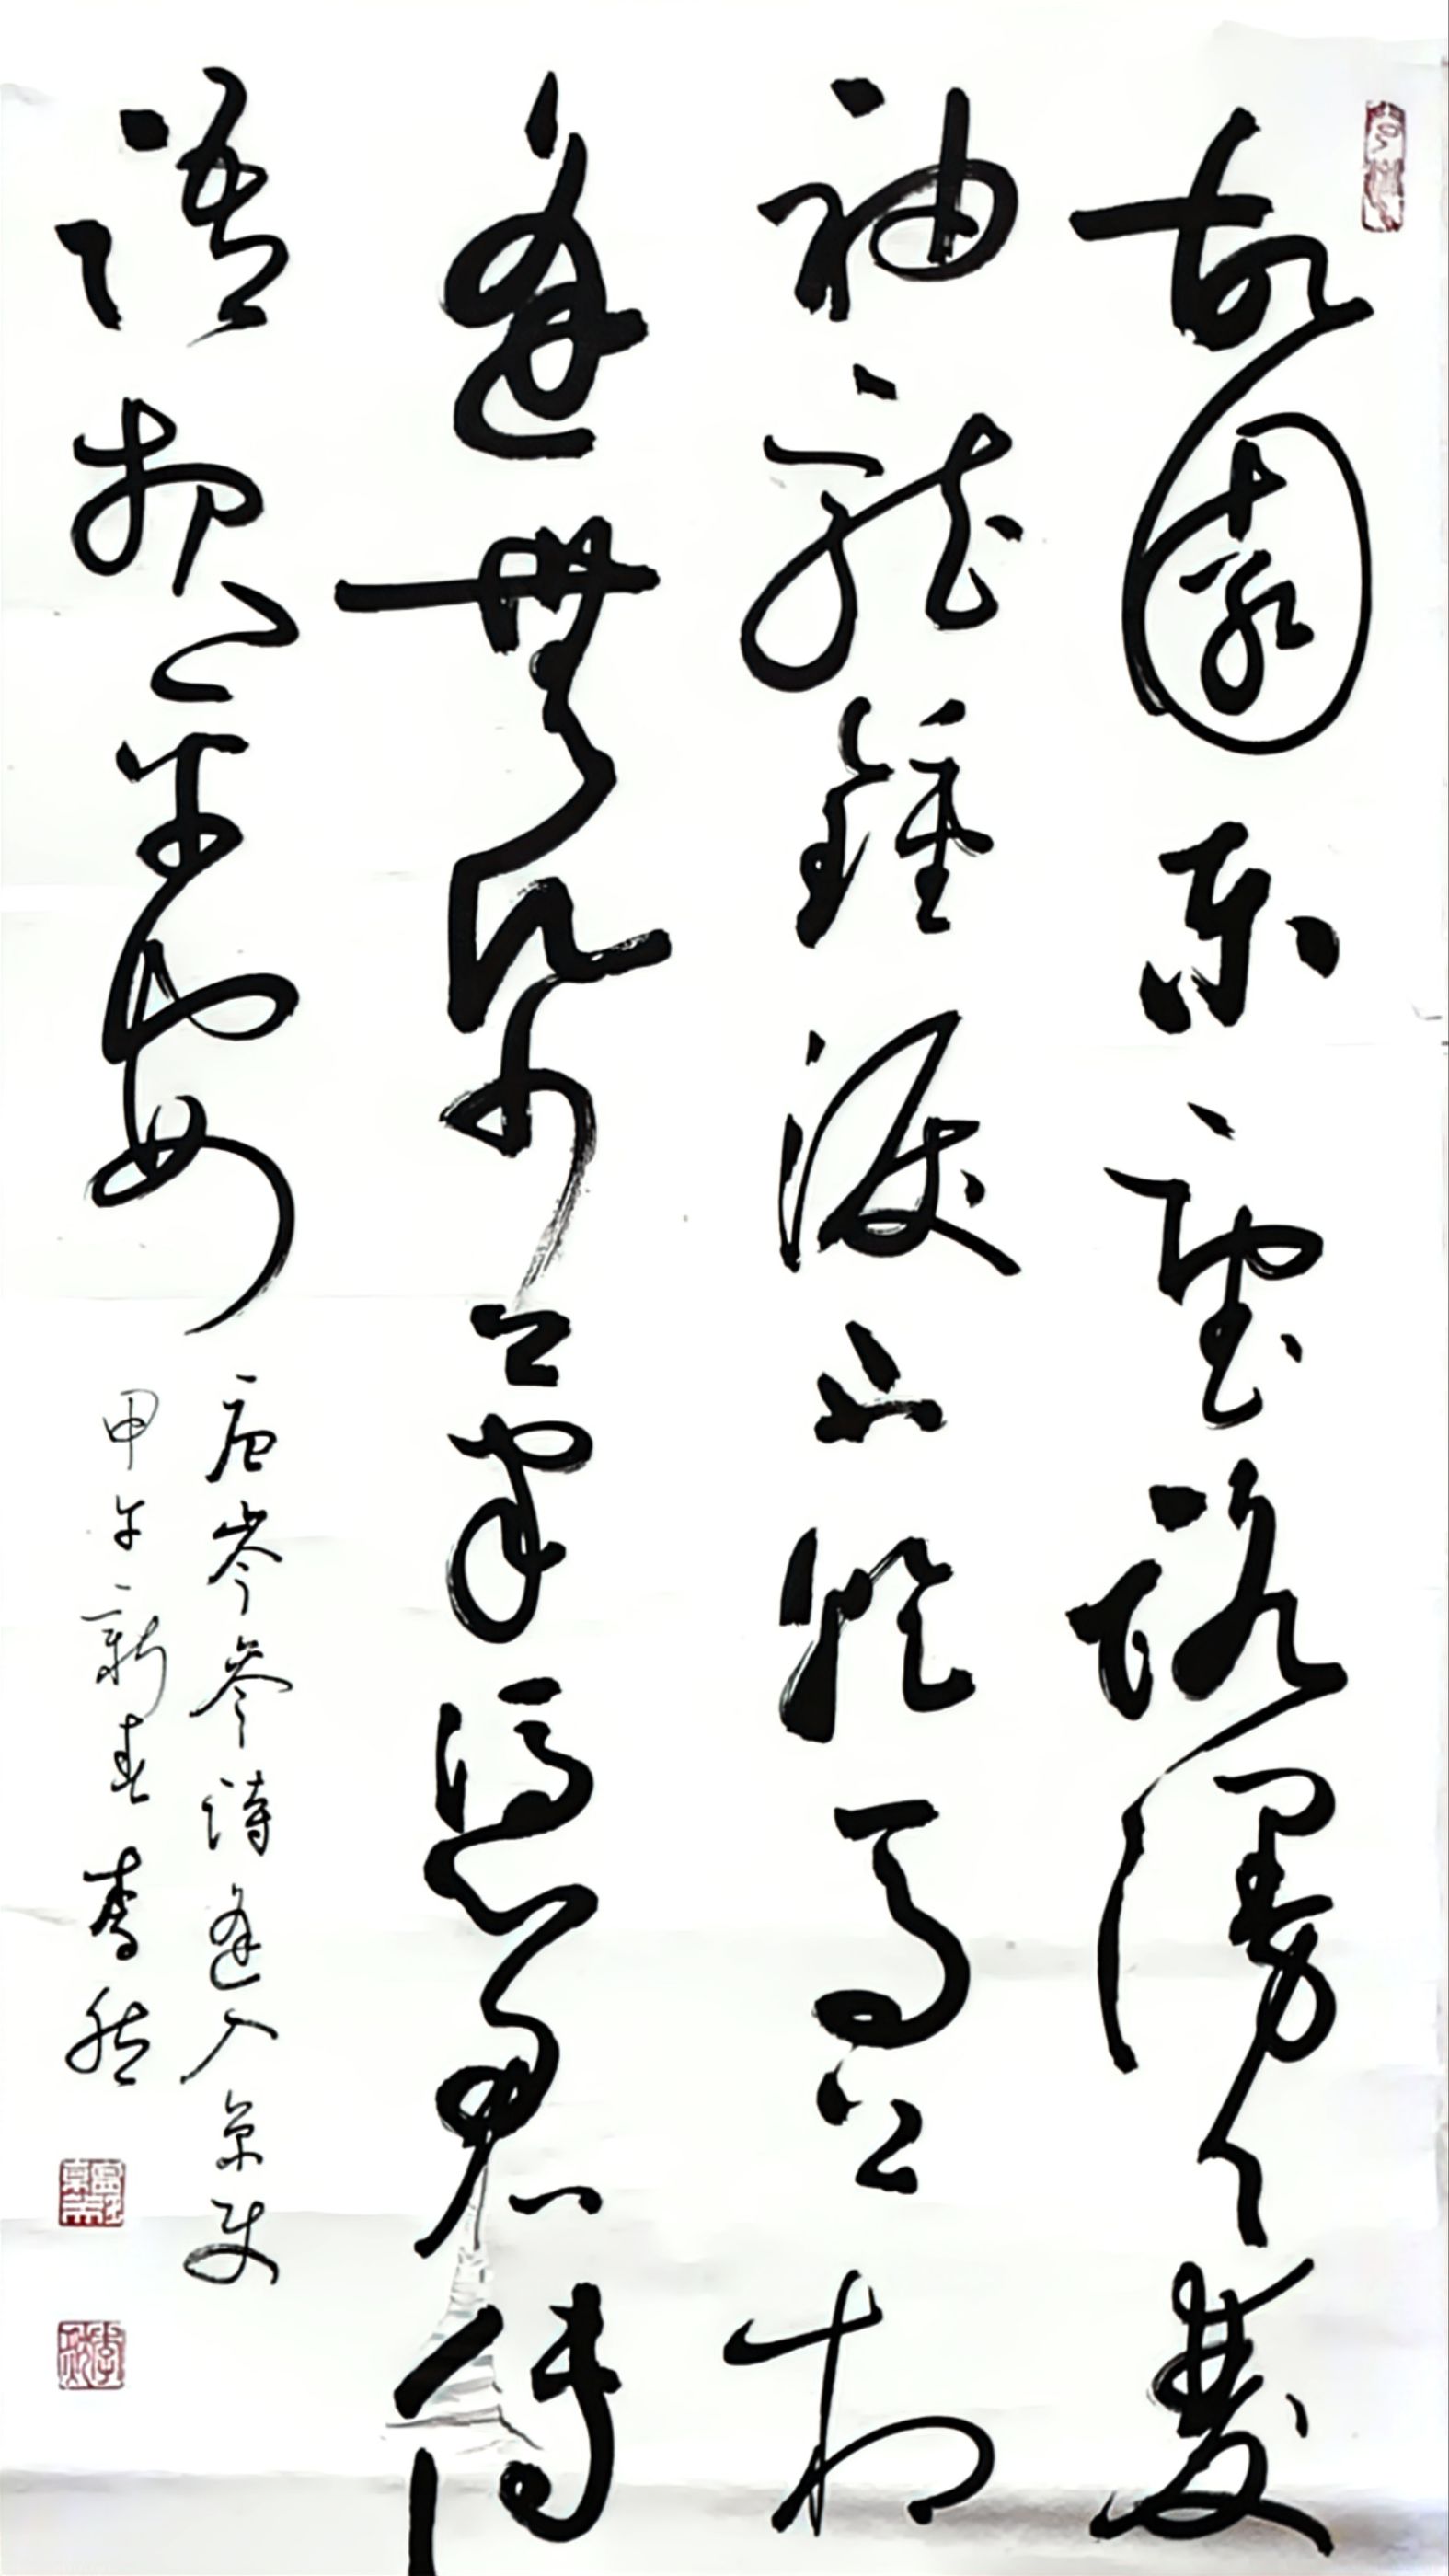 故園东望路漫漫雙
袖龍鍾淚不乾馬上相
逢無紙筆憑君傳
語报平安
唐岑参詩逢入京使
甲午新春李然